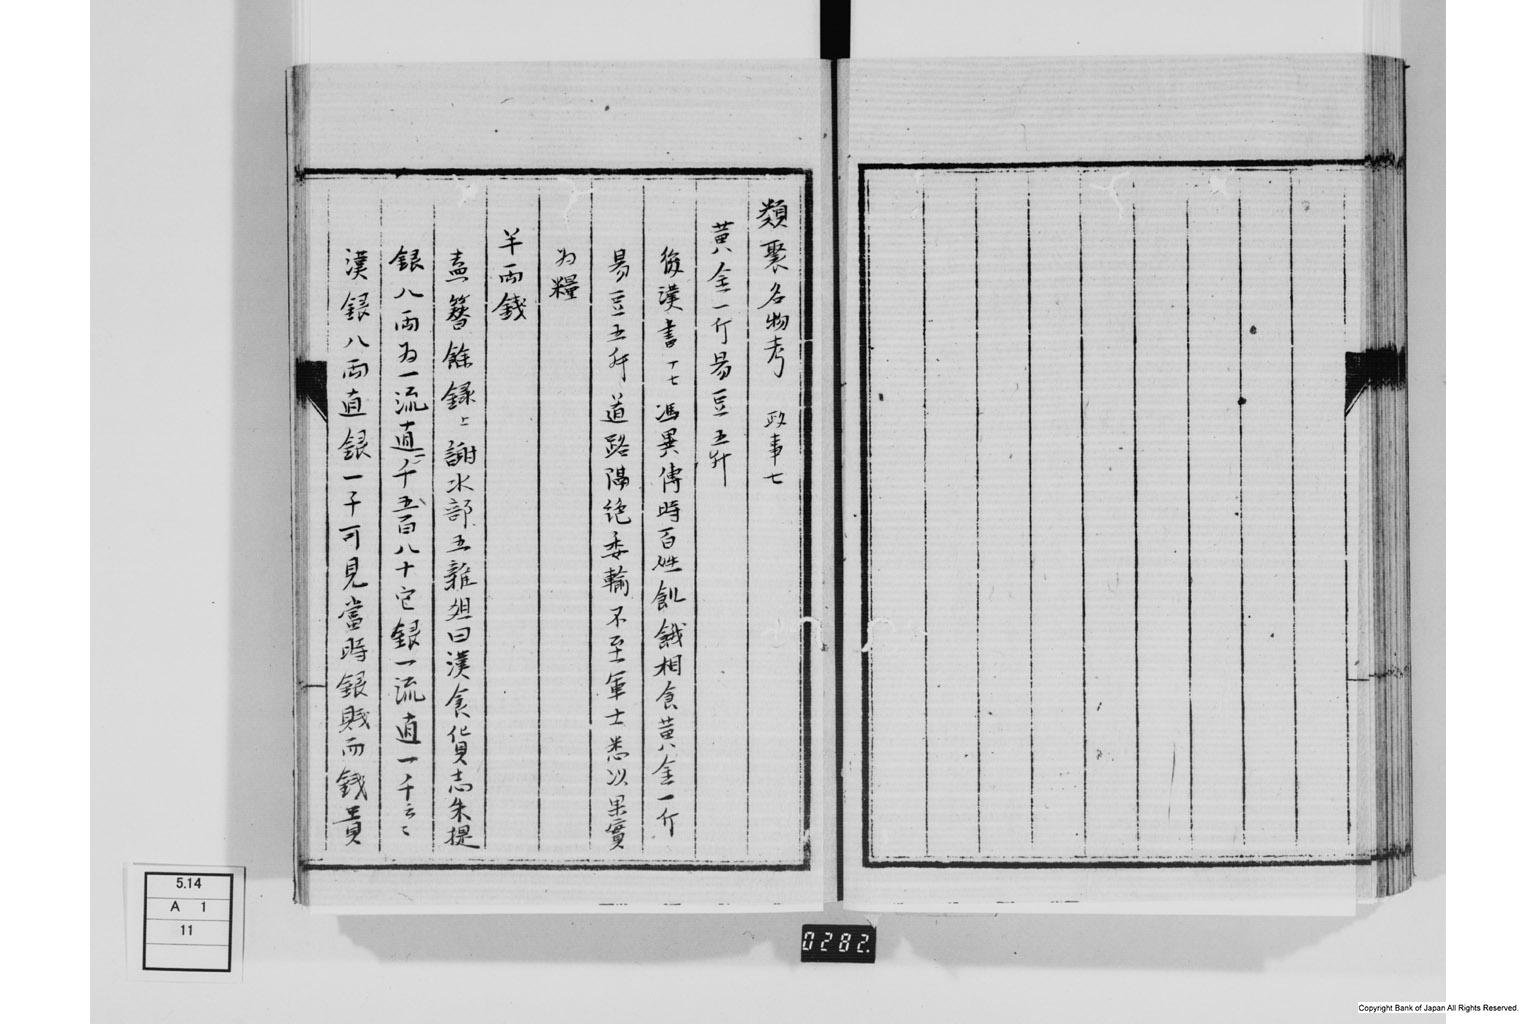 類聚名物考 政事七
黄金一斤易豆五升
後漢書 十七 馮異傳時百姓飢餓相食黄金一斤
易豆五升道路隔絶委輸不至軍士悉以果實
為糧
半両錢
盍簪餘録上 謝水部五雜俎曰漢食貨志朱提
銀八両為一流直一千五百八十它銀一流直一千云々
漢銀八両直銀一千可見當時銀賤而錢貴
5.14
A 1
11
0282.
Copyright Bank of Japan All Rights Reserved.